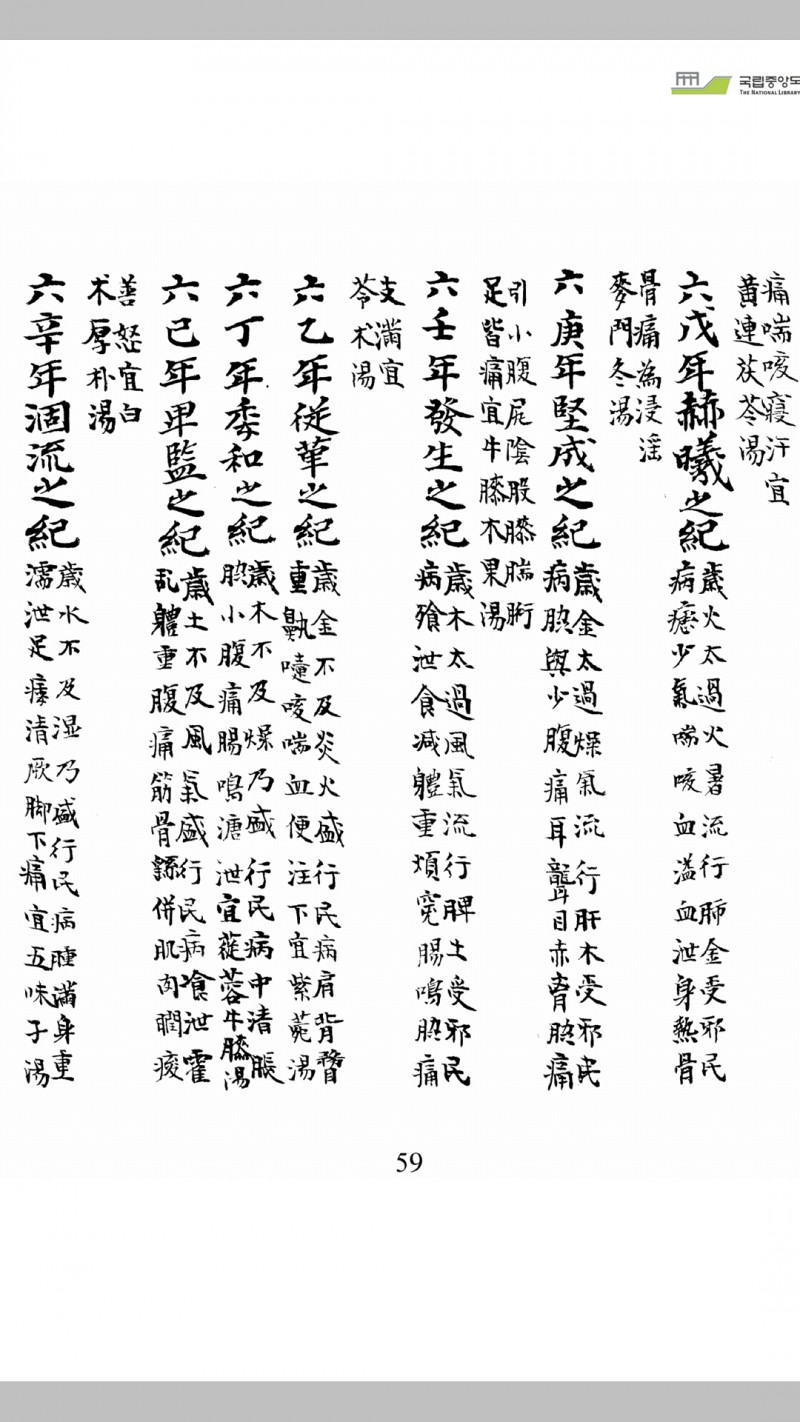 국립중앙도
THE NATIONAL LIBRARY
痛喘咳寝汗宜
黄連茯苓湯
六戊年赫曦之紀
歲火太過火暑流行肺金受邪民
病瘧少氣喘咳血溢血泄身熱骨
骨痛為浸淫
麥門冬湯
六庚年堅成之紀
歲金太過燥氣流行肝木受邪民
病脇與少腹痛耳聾目赤胷脇痛
引小腹尻陰股膝腨胻
足皆痛宜牛膝木果湯
六壬年發生之紀
歲木太過風氣流行脾土受邪民
病飱泄食减體重煩寃腸鳴脇痛
支滿宜
苓朮湯
六乙年從革之紀
歲金不及炎火盛行民病肩背瞀
重鼽嚏咳喘血便注下宜紫菀湯
六丁年委和之紀
歲木不及燥乃盛行民病中清脹
脇小腹痛腸鳴溏泄宜蓯蓉牛膝湯
六己年卑監之紀
歲土不及風氣盛行民病飱泄霍
乱體重腹痛筋骨繇併肌肉瞤痠
善怒宜白
朮厚朴湯
六辛年涸流之紀
歲水不及湿乃盛行民病腫滿身重
濡泄足痿清厥脚下痛宜五味子湯
59